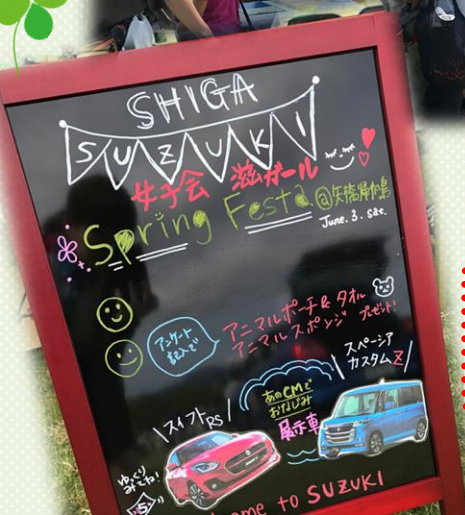 SHIGA
SUZUKI
女子会 滋ガール
Spring Festa @矢橋帰帆島
June. 3. sat.
アンケート
記入で
アニマルポーチ& タオル
アニマルスポンジ プレゼント!
あのCMで
おなじみ
展示車
スペーシア
カスタムZ
スイフトRS
ゆっくり
みてね!
S
to SUZUKI